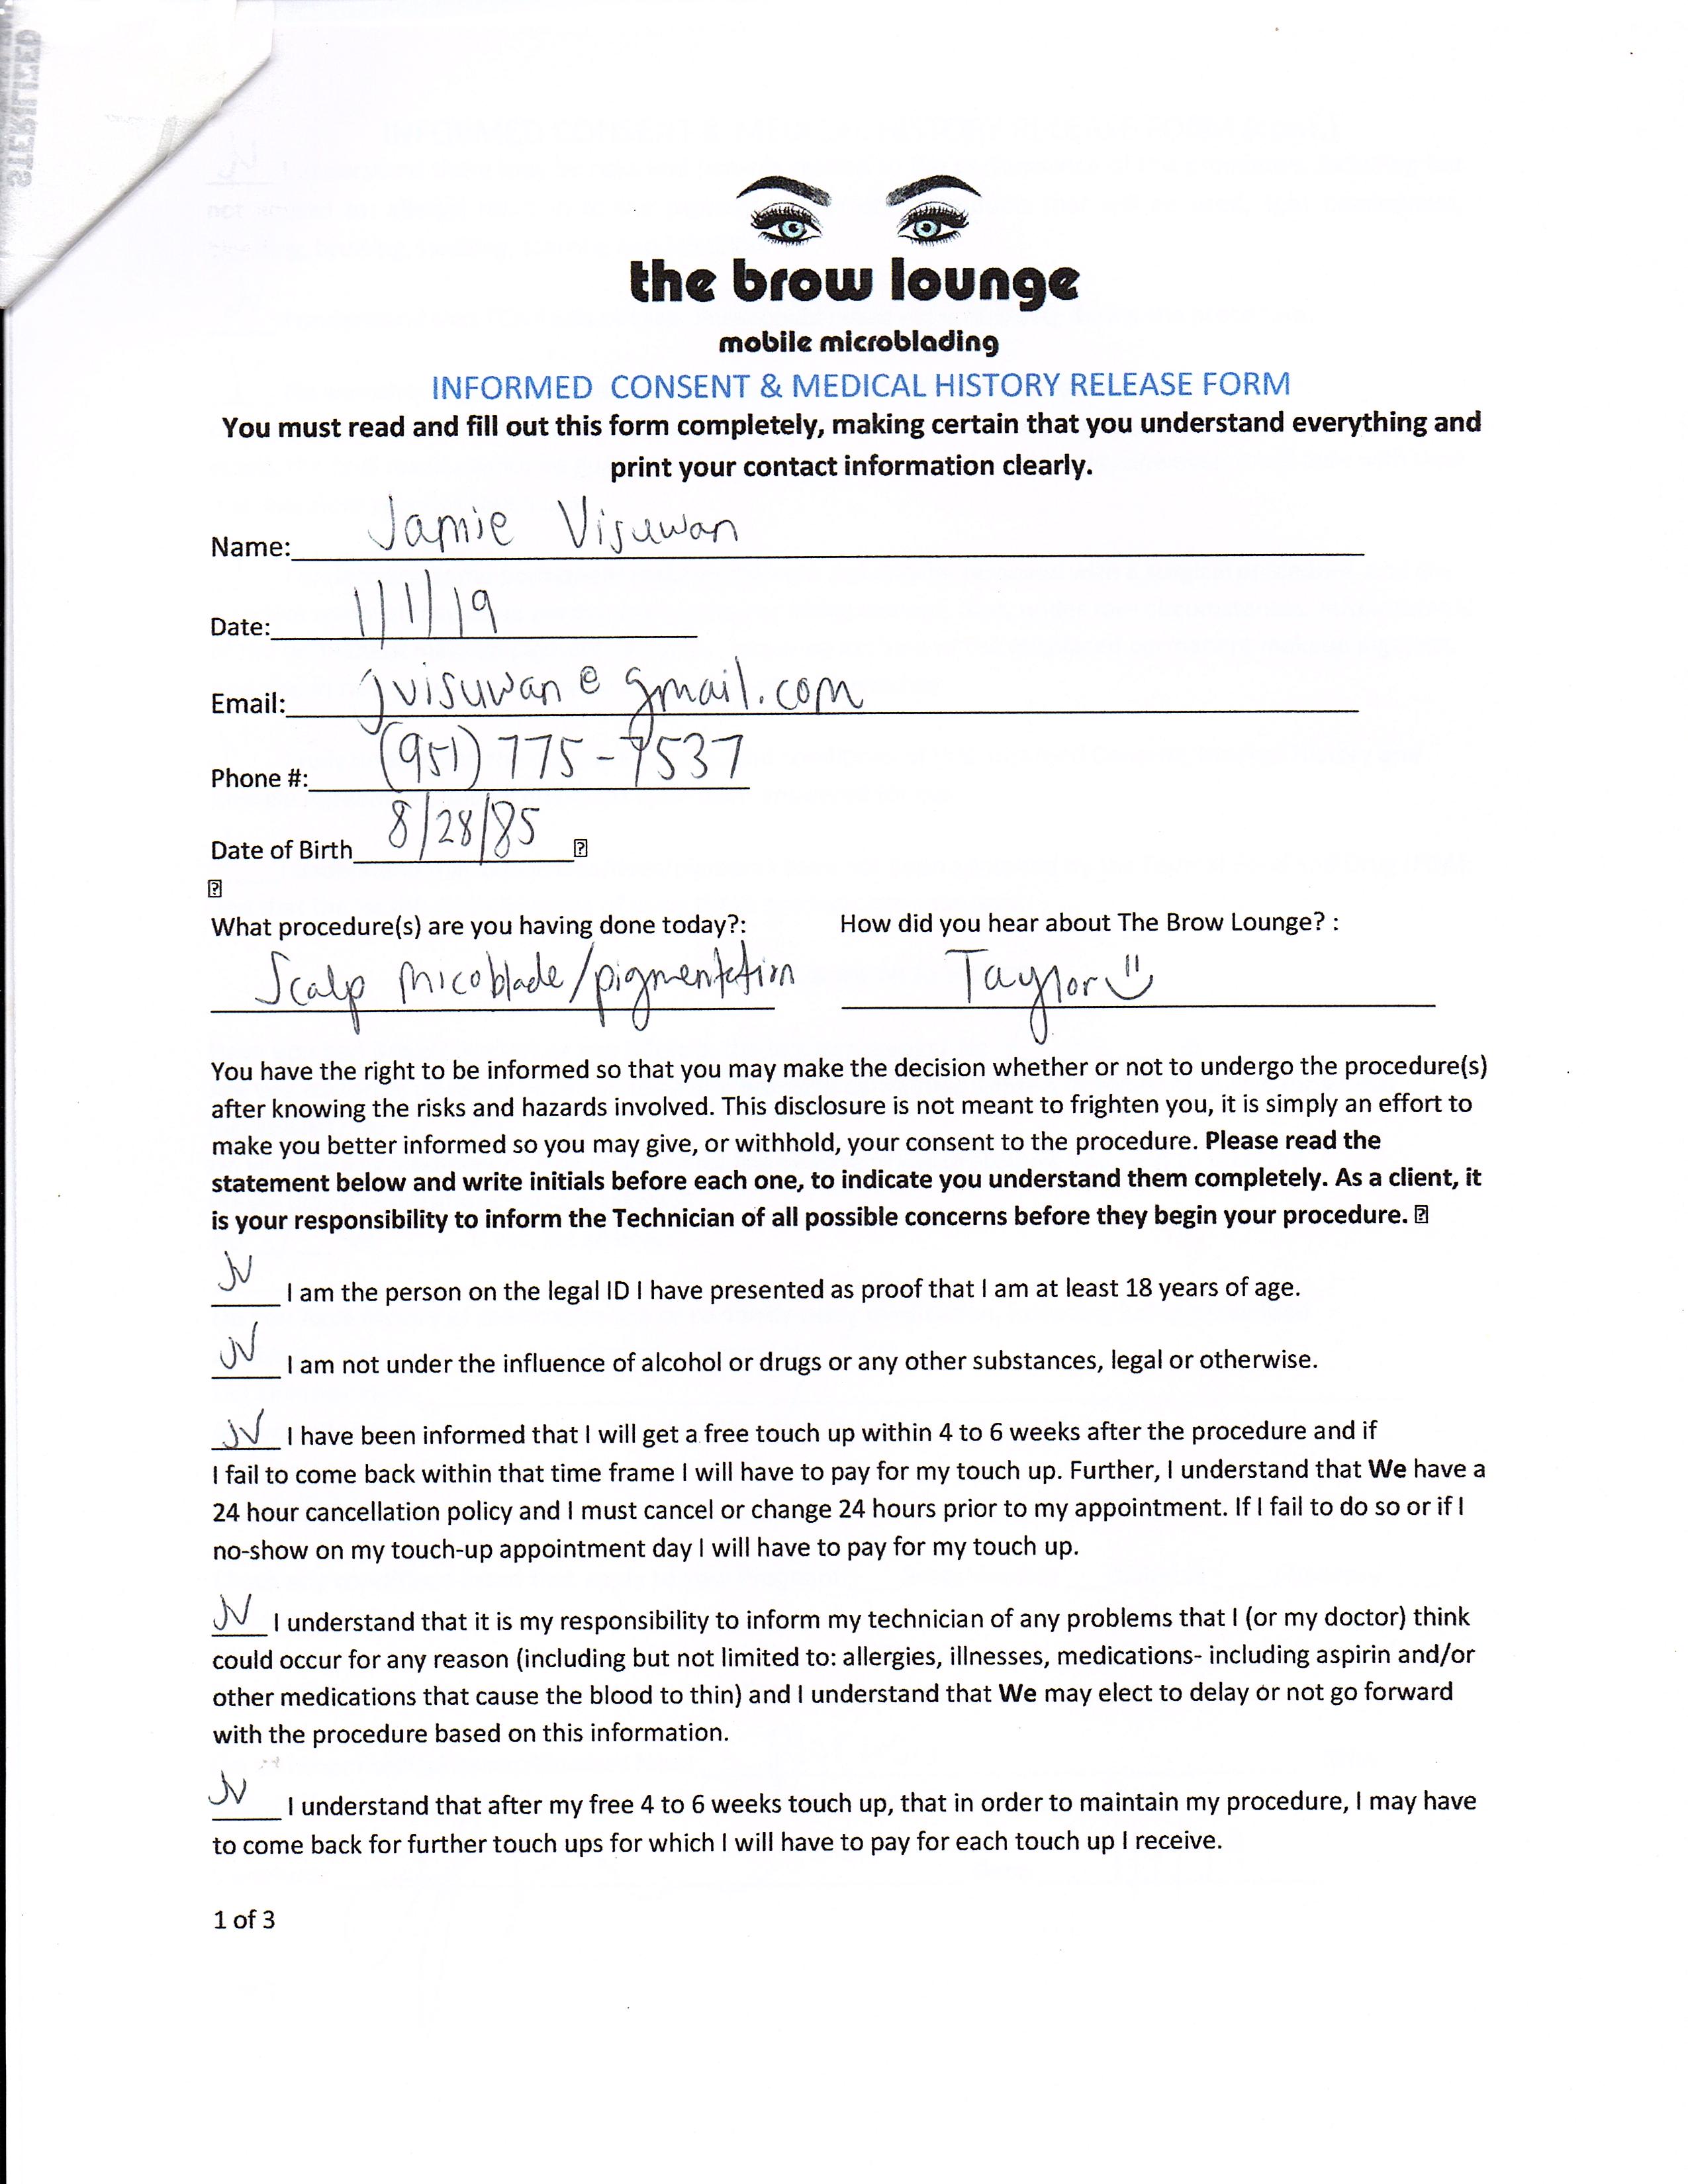 STERILIZED
the brow lounge
mobile microblading
INFORMED CONSENT & MEDICAL HISTORY RELEASE FORM
You must read and fill out this form completely, making certain that you understand everything and
print your contact information clearly.
Name: Jamie Visuwan
Date: 1/1/19
Email: jvisuwan@gmail.com
Phone #: (951) 775-7537
Date of Birth 8/28/85
What procedure(s) are you having done today?: How did you hear about The Brow Lounge? :
Scalp micoblade/pigmentation Taylor
You have the right to be informed so that you may make the decision whether or not to undergo the procedure(s)
after knowing the risks and hazards involved. This disclosure is not meant to frighten you, it is simply an effort to
make you better informed so you may give, or withhold, your consent to the procedure. Please read the
statement below and write initials before each one, to indicate you understand them completely. As a client, it
is your responsibility to inform the Technician of all possible concerns before they begin your procedure.
JV I am the person on the legal ID I have presented as proof that I am at least 18 years of age.
JV I am not under the influence of alcohol or drugs or any other substances, legal or otherwise.
JV I have been informed that I will get a free touch up within 4 to 6 weeks after the procedure and if
I fail to come back within that time frame I will have to pay for my touch up. Further, I understand that We have a
24 hour cancellation policy and I must cancel or change 24 hours prior to my appointment. If I fail to do so or if I
no-show on my touch-up appointment day I will have to pay for my touch up.
JV I understand that it is my responsibility to inform my technician of any problems that I (or my doctor) think
could occur for any reason (including but not limited to: allergies, illnesses, medications- including aspirin and/or
other medications that cause the blood to thin) and I understand that We may elect to delay or not go forward
with the procedure based on this information.
JV I understand that after my free 4 to 6 weeks touch up, that in order to maintain my procedure, I may have
to come back for further touch ups for which I will have to pay for each touch up I receive.
1 of 3